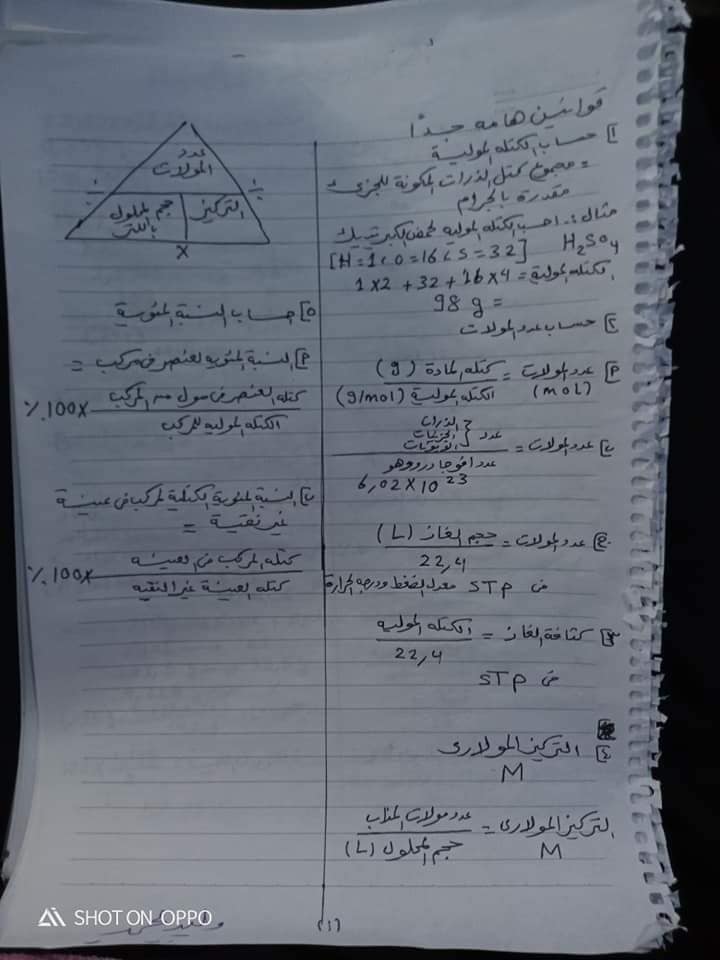 قوانين هامه جدًا
١] حساب الكتله المولية
= مجموع كتل الذرات المكونة للجزئ
مقدرة بالجرام
مثال: احسب الكتله المولية لحمض الكبريتيك
H2SO4 [H=1، O=16، S=32]
الكتله المولية = 1x2 + 32 + 16x4
= 98 g
٢] حساب عدد المولات
P] عدد المولات (mol) = كتله المادة (g)
الكتله المولية (g/mol)
ب] عدد المولات = عدد { الذرات
الجزيئات
الايونات
عدد افوجادرو وهو
6,02 x 10 23
ج] عدد المولات = حجم الغاز (L)
22,4
فى STP معدل الضغط ودرجه الحرارة
٣] كثافة الغاز = الكتله المولية
22,4
فى STP
٤] التركيز المولارى
M
التركيز المولارى = عدد مولات المذاب
M حجم المحلول (L)
عدد
المولات
÷ ÷
التركيز حجم المحلول
باللتر
X
٥] حساب النسبة المئوية
P] النسبة المئويه لعنصر فى مركب =
كتله العنصر فى مول من المركب x100٪
الكتله الموليه للمركب
ب] النسبة المئوية الكتلية لمركب فى عينة
غير نقية =
كتله المركب فى العينه x100٪
كتله العينة غير النقيه
(١)
SHOT ON OPPO